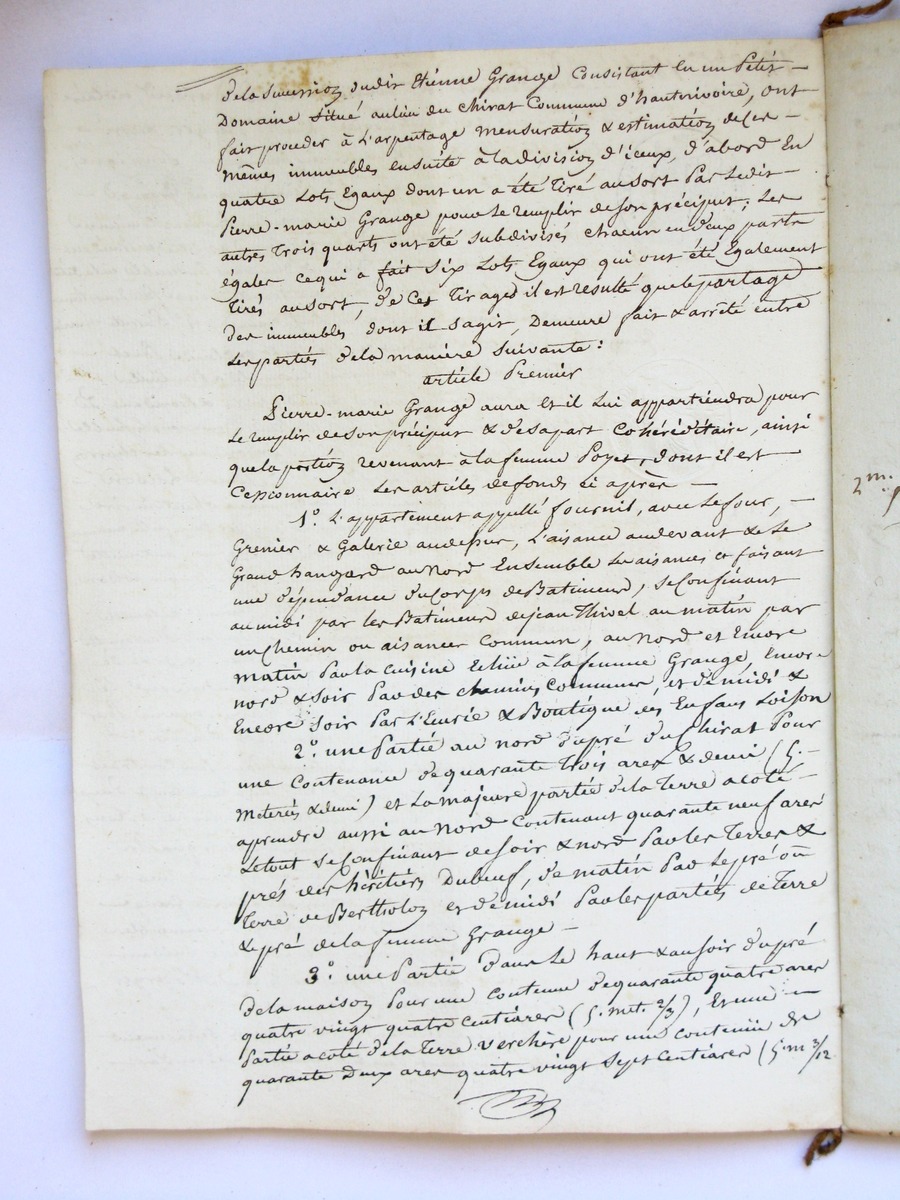 de la succession dudit Etienne Grange Consistant en un Petit
Domaine situé au lieu du Chirat Commune d'hauterivoire, ont
fait proceder à L'arpentage mensuration & estimation de ces
mêmes immeubles ensuite à la division d'iceux, d'abord En
quatre Lots Egaux dont un a été Tiré au sort Par Ledit
Pierre-marie Grange pour Le remplir de son préciput; Les
autres Trois quarts ont été subdivisés chacun en deux parts
égales ce qui a fait Six Lots Egaux qui ont été Egalement
Tirés au sort, de Ces Tirages il est resulté que le partage
des immeubles dont il s'agit, Demeure fait & arrêté entre
Les parties de la manière suivante:
article Premier
Pierre-marie Grange aura Et il Lui appartiendra pour
Le remplir de son préciput & de sa part Cohéréditaire, ainsi
que la portion revenant à la femme Poyet, dont il est
Cessionnaire Les articles de fonds ci après
1°. L'appartement appellé fournil, avec Le four,
Grenier & Galerie au dessus, L'aisance au devant & Le
Grand hangard au Nord Ensemble Les aisances et faisant
une dépendance du Corps de Batiment, se Confinant
au midi par les Batiments de jean Thivel au matin par
un Chemin ou aisances Commun, au Nord et Encore
matin Par la Cuisine Echue à la femme Grange, Encore
nord & soir Par des chemins Communs, et de midi &
Encore soir Par L'Ecurie & Boutique des Enfans Loison
2°. une Partie au nord du pré du Chirat Pour
une Contenance de quarante Trois ares & demi (5.
meterés & demi) et La majeure partie de la Terre a coté
a prendre aussi au Nord Contenant quarante neuf ares
Le tout se Confinant de soir & nord Par les Terres &
prés des héritiers Dubeuf, de matin Par Le pré ou
Terre de Bertholon et de midi Par les parties de Terre
& pré de la femme Grange
3°. une Partie dans Le haut & au soir du pré
de la maison Pour une Contenue de quarante quatre ares
quatre vingt quatre Centiares (5. met. 2/3), Et une
Partie a coté de la Terre verchère pour une Contenue de
quarante Deux ares quatre vingt sept Centiares (5. m 5/12
2m.